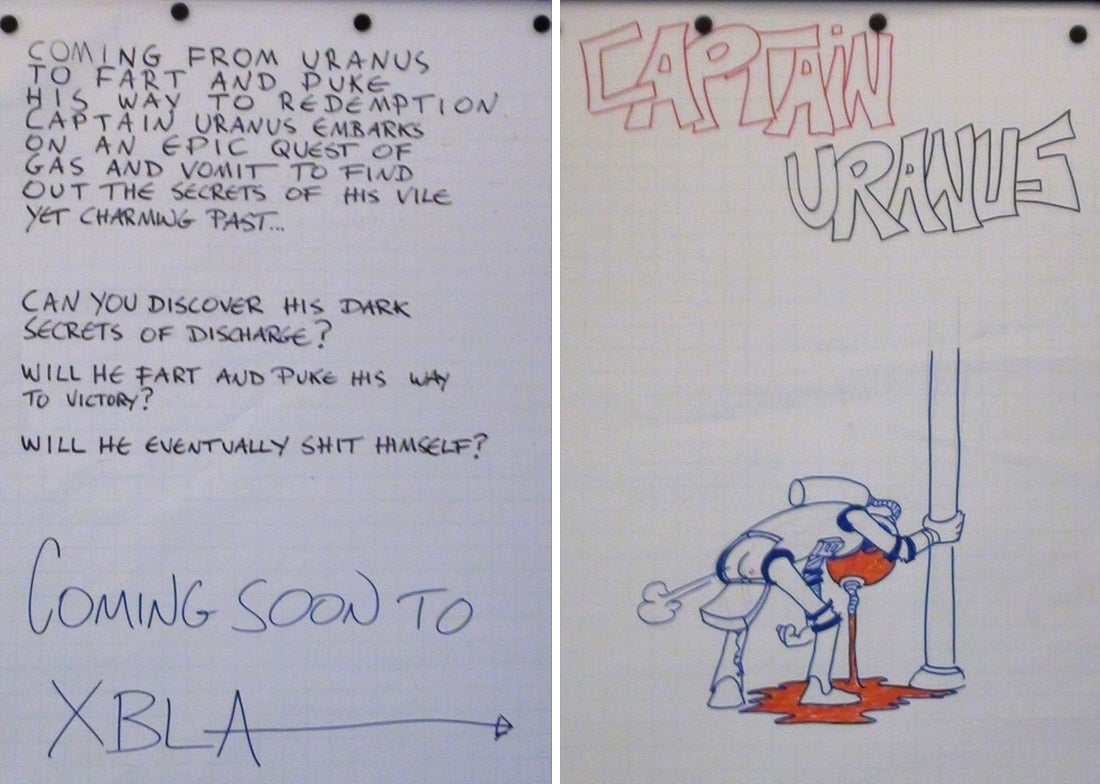 COMING FROM URANUS
TO FART AND PUKE
HIS WAY TO REDEMPTION
CAPTAIN URANUS EMBARKS
ON AN EPIC QUEST OF
GAS AND VOMIT TO FIND
OUT THE SECRETS OF HIS VILE
YET CHARMING PAST...
CAN YOU DISCOVER HIS DARK
SECRETS OF DISCHARGE?
WILL HE FART AND PUKE HIS WAY
TO VICTORY?
WILL HE EVENTUALLY SHIT HIMSELF?
COMING SOON TO
XBLA
CAPTAIN
URANUS